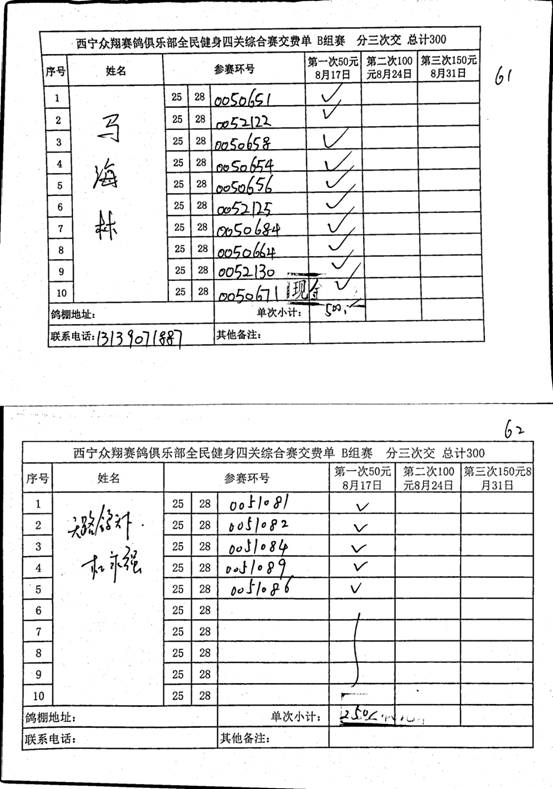 西宁众翔赛鸽俱乐部全民健身四关综合赛交费单 B组赛 分三次交 总计300
61
序号 姓名 参赛环号 第一次50元8月17日 第二次100元8月24日 第三次150元8月31日
马海林
1 25 28 0050651 ✓
2 25 28 0052122 ✓
3 25 28 0050658 ✓
4 25 28 0050654 ✓
5 25 28 0050656 ✓
6 25 28 0052125 ✓
7 25 28 0050684 ✓
8 25 28 0050664 ✓
9 25 28 0052130 ✓
10 25 28 0050671 现金 ✓
鸽棚地址: 单次小计: 500.
联系电话: 13139071887 其他备注:
62
西宁众翔赛鸽俱乐部全民健身四关综合赛交费单 B组赛 分三次交 总计300
序号 姓名 参赛环号 第一次50元8月17日 第二次100元8月24日 第三次150元8月31日
1 25 28 0051081 ✓
2 25 28 0051082 ✓
3 25 28 0051084 ✓
4 25 28 0051089 ✓
5 25 28 0051086 ✓
6 25 28
7 25 28
8 25 28
9 25 28
10 25 28
鸽棚地址: 单次小计: 250
联系电话: 其他备注: